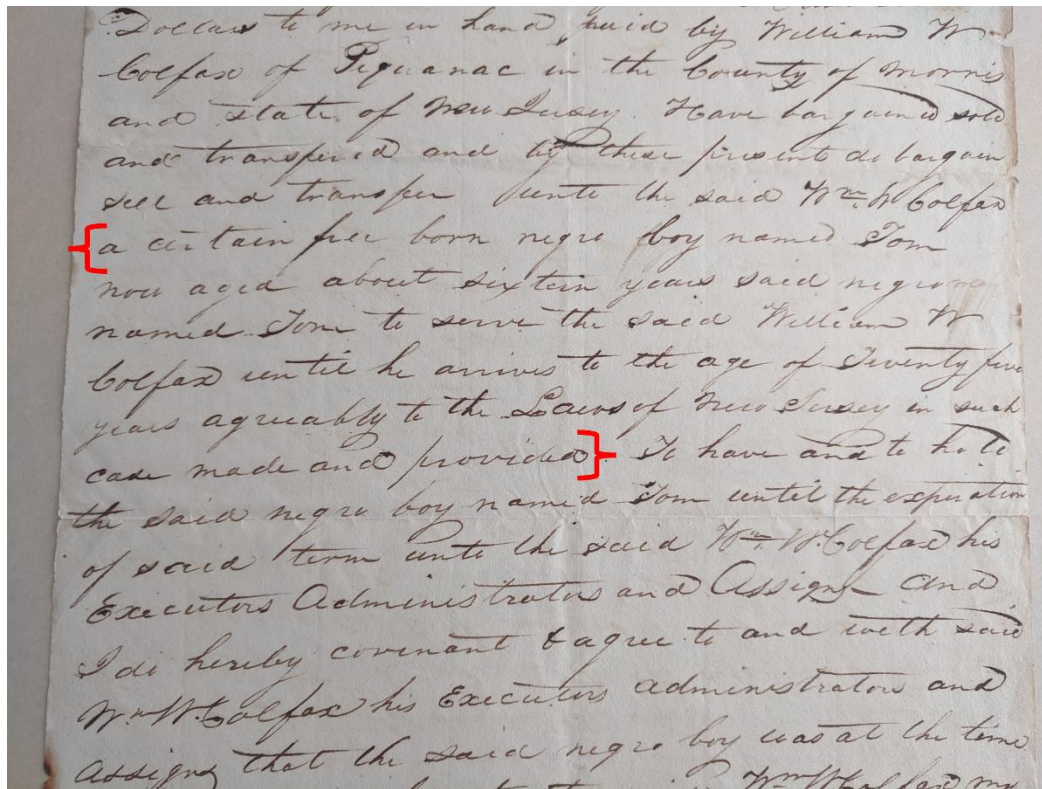 Dollars to me in hand, paid by William W
Colfax of Pequanac in the County of Morris
and State of New Jersey. Have bargained sold
and transfered and by these presents do bargain
sell and transfer unto the said Wm W Colfax
a certain free born negro boy named Tom
now aged about sixteen years said negro
named Tom to serve the said William W
Colfax until he arrives to the age of Twenty five
years agreeably to the Laws of New Jersey in such
case made and provided. To have and to hold
the said negro boy named Tom until the experation
of said term unto the said Wm. W. Colfax his
Executors Administrators and Assigns and
I do hereby covenant & agree to and with said
Wm W. Colfax his Executors administrators and
assigns that the said negro boy was at the time
Wm W Colfax my